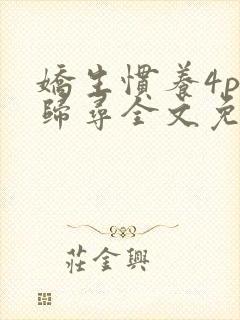 嬌生慣養4p
歸尋全文免
莊金興